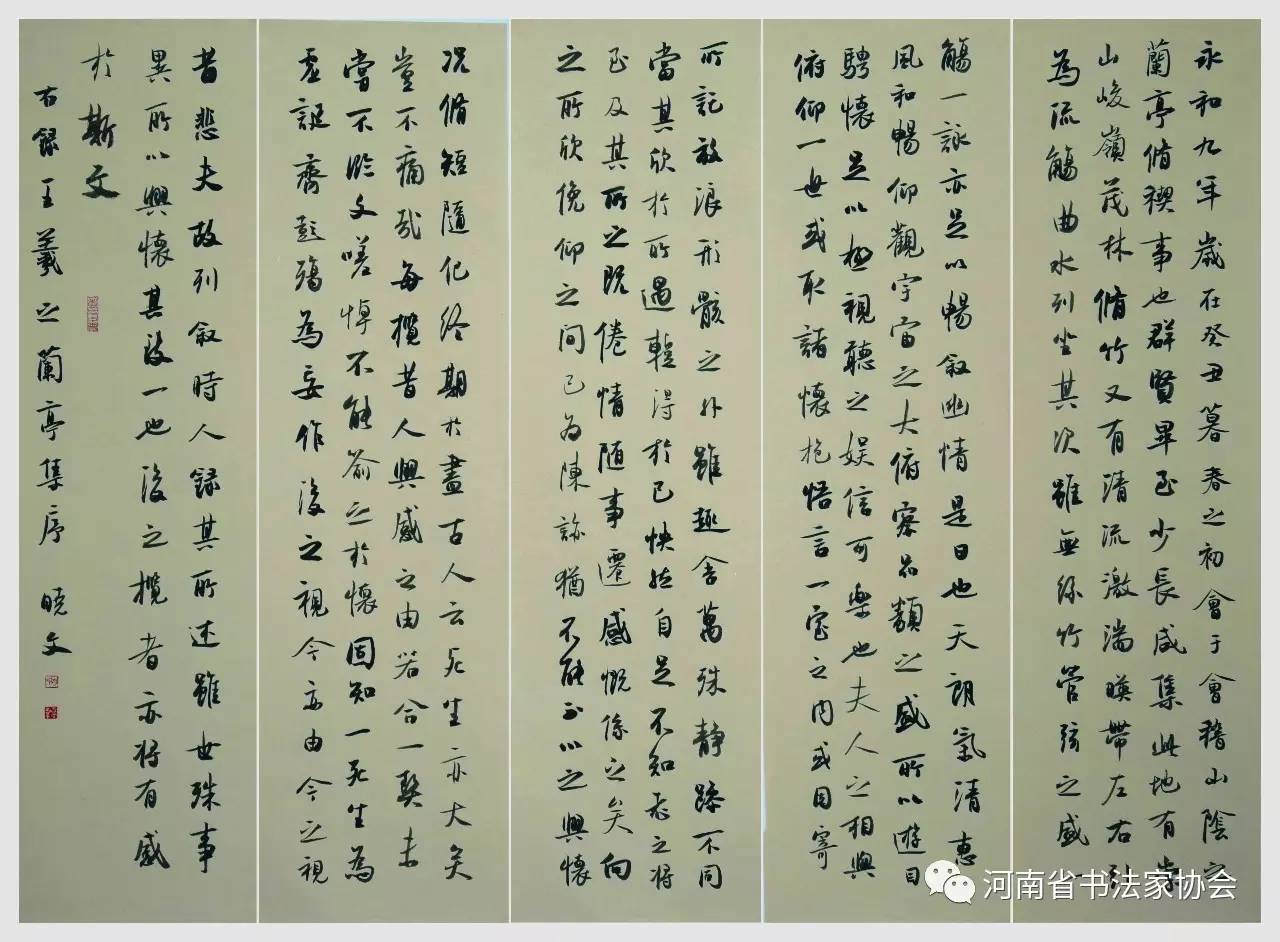 永和九年歲在癸丑暮春之初會于會稽山陰之
蘭亭脩稧事也群賢畢至少長咸集此地有崇
山峻嶺茂林脩竹又有清流激湍暎帶左右引以
為流觴曲水列坐其次雖無絲竹管弦之盛一
觴一詠亦足以暢叙幽情是日也天朗氣清惠
風和暢仰觀宇宙之大俯察品類之盛所以遊目
騁懷足以極視聽之娛信可樂也夫人之相與
俯仰一世或取諸懷抱悟言一室之內或因寄
所託放浪形骸之外雖趣舍萬殊靜躁不同
當其欣於所遇蹔得於己快然自足不知老之將
至及其所之既倦情隨事遷感慨係之矣向
之所欣俛仰之間已為陳跡猶不能不以之興懷
況脩短隨化終期於盡古人云死生亦大矣
豈不痛哉每攬昔人興感之由若合一契未
嘗不臨文嗟悼不能喻之於懷固知一死生為
虛誕齊彭殤為妄作後之視今亦由今之視
昔悲夫故列叙時人錄其所述雖世殊事
異所以興懷其致一也後之攬者亦將有感
於斯文
右錄王羲之蘭亭集序 曉文
河南省书法家协会